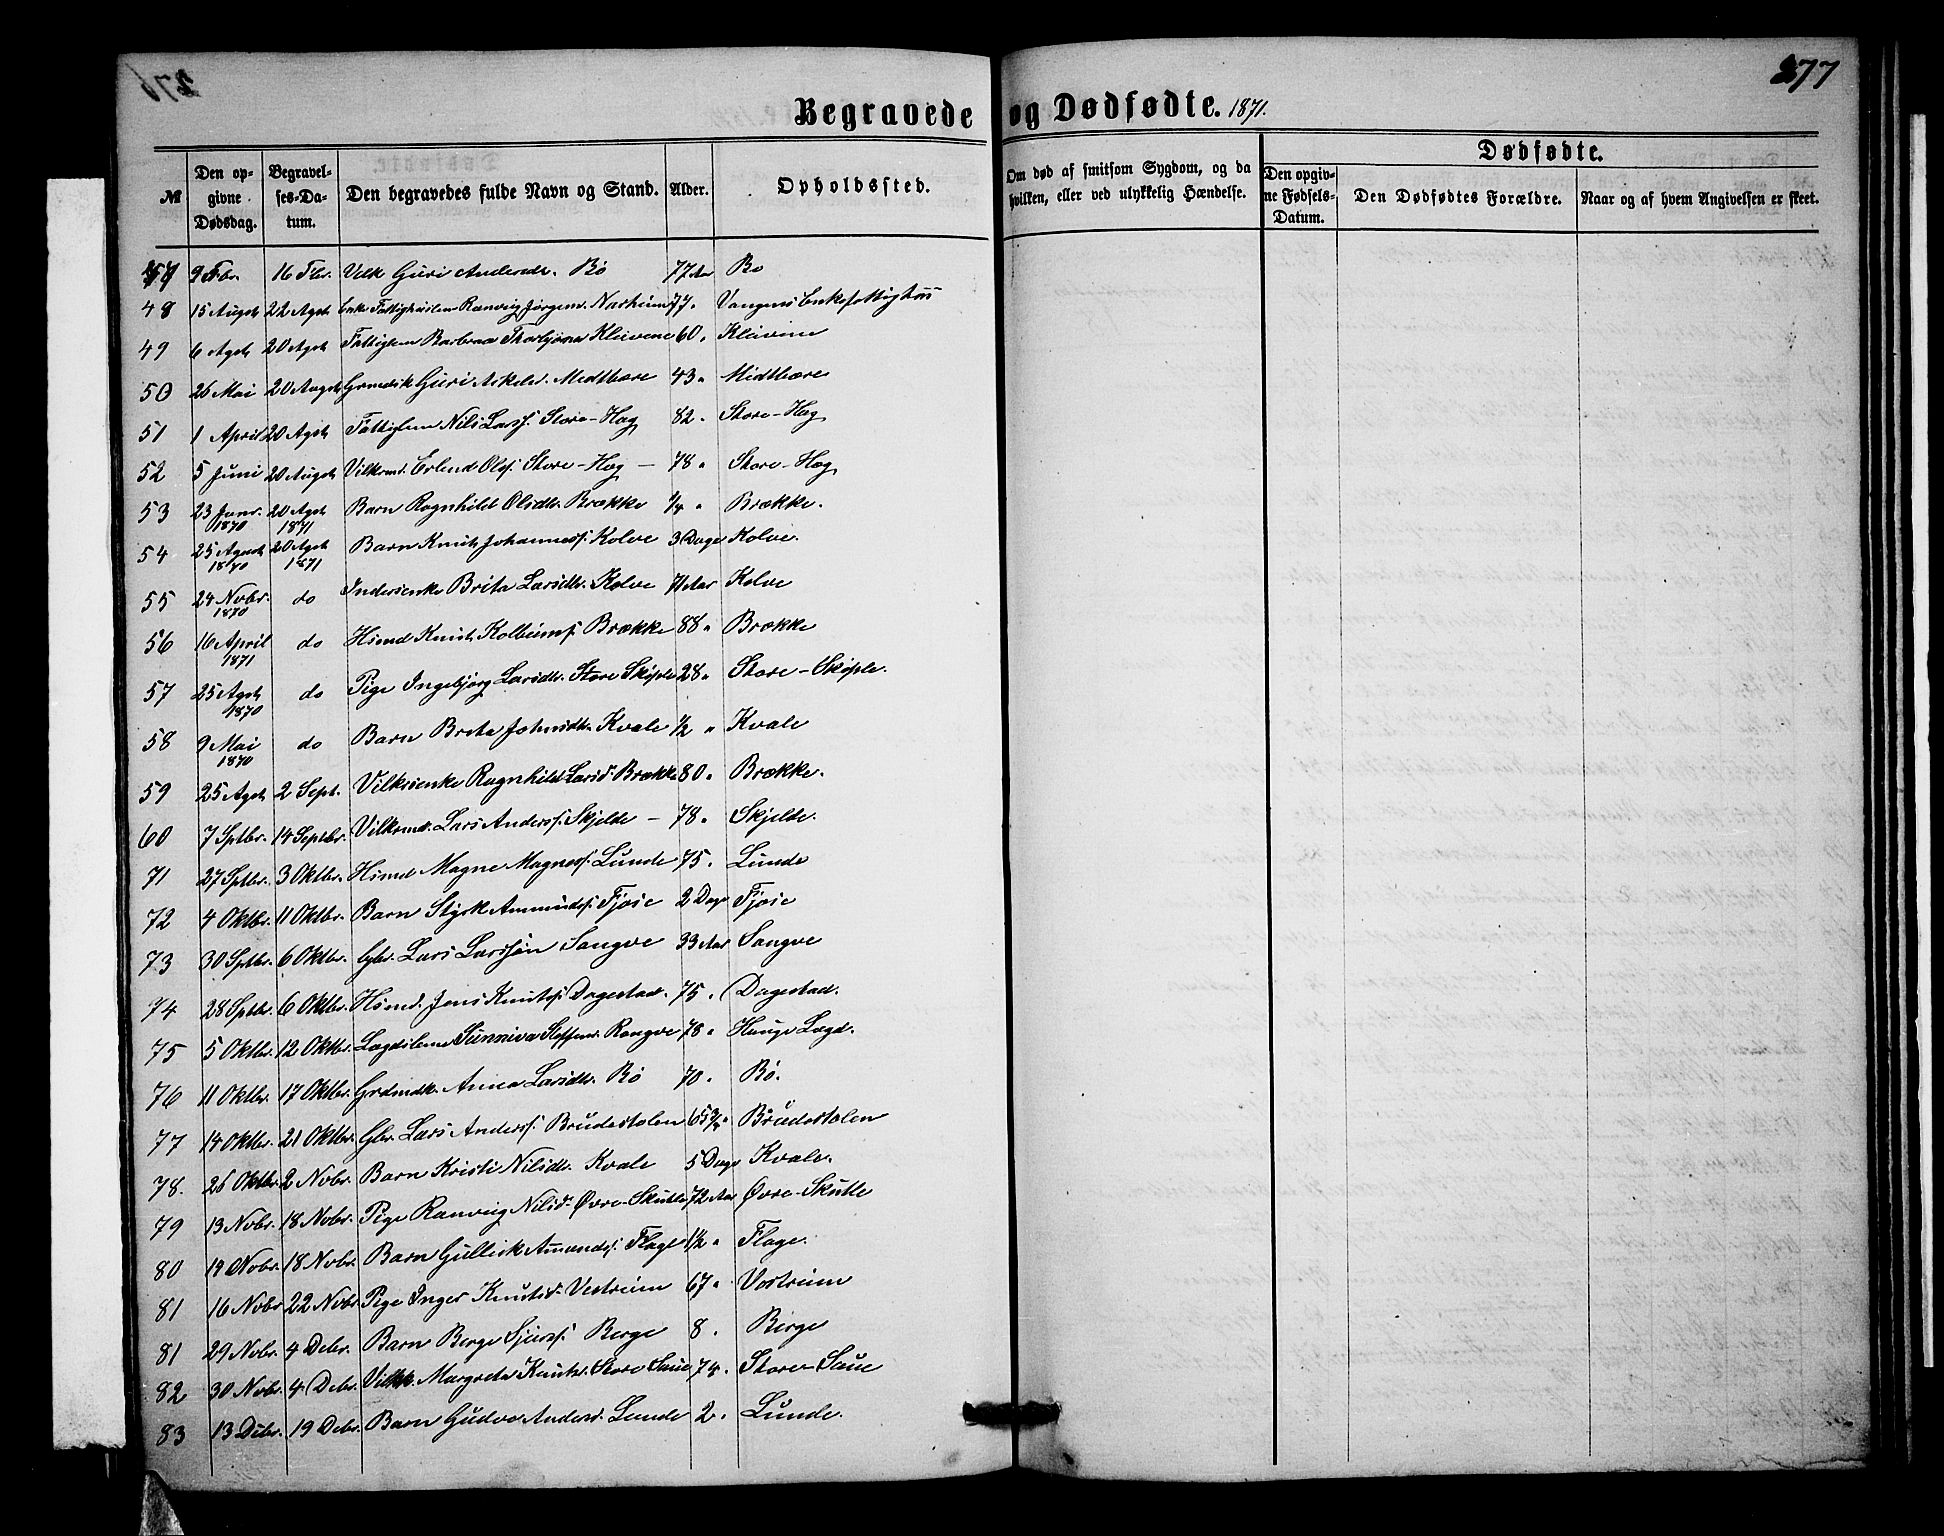 276
277
Begravede og Dødfødte. 1871.
№
Den opgivne Dødsdag.
Begravelses-Datum.
Den begravedes fulde Navn og Stand.
Alder.
Opholdssted.
Om død af smitsom Sygdom, og da hvilken, eller ved ulykkelig Hændelse.
Dødfødte.
Den opgivne Fødsels-Datum.
Den Dødfødtes Forældre.
Naar og af hvem Angivelsen er skeet.
47 9 Fbr. 16 Fbr. Vilk Guri Andersdr. Bö 77 Aar Bö
48 15 Augst 22 Agst Enke Fattighuslem Ranveig Jørgensd. Nasheim 77 " Vangens Enkefattighus
49 6 Agst 20 Agst Fattiglem Barbraa Thorbjørnsd. Kleivene 60 " Kleivene
50 26 Mai 20 Augst Grmdsk Guri Askelsd. Medtbøre 43 " Midtbøre
51 1 April 20 Agst Fattiglem Nils Larss. Store-Hæg 82 " Store-Hæg
52 5 Juni 20 Augst Vilksmd. Erlend Ols. Store-Hæg — 78 " Store-Hæg
53 23 Janr. 1870 20 Agst 1871 Barn Ragnhild Olsdtr. Brække 1/4 " Brække.
54 25 Agust 1870 20 Agst 1871 Barn Knut Johanness. Kolve 3 Dage Kolve.
55 24 Novbr. 1870 do Inderstenke Brita Larsdtr. Kolve 71 Aar Kolve
56 16 April 1871 do Hsmd Knut Kolbeins. Brække 88 " Brække
57 25 Agst 1870 do Pige Ingebjørg Larsdtr. Store Skiple 28 " Store-Skiple.
58 9 Mai 1870 do Barn Brita Johnsdtr. Kvale 1/2 " Kvale
59 25 Agst 2 Sept. Vilksenke Ragnhild Larsd. Brække 80 " Brække.
60 7 Sptbr. 14 Septbr. Vilksmd. Lars Anders. Skjelde — 78 " Skjelde.
71 27 Sptbr. 3 Oktbr. Hsmd Magne Magness. Lunde 75. Lunde
72 4 Oktbr. 11 Oktbr. Barn Styrk Ammunds. Fjøse 2 Dage Fjøse
73 30 Sptbr. 6 Oktbr. Gbr. Lars Larssøn Sangve 33 Aar Sangve
74 28 Sptbr. 6 Oktbr. Hsmd. Jens Knuts. Dagestad. 75. Dagestad.
75 5 Oktbr. 12 Oktbr. Lægdslem Sunniva Steffensd. Rongve 78 " Hauge Lægd.
76 11 Oktbr. 17 Oktbr. Grdmdk. Anna Larsdtr. Bö 70. Bö.
77 14 Oktbr. 21 Oktbr. Gbr. Lars Anders. Brudestolen 65 3/4 " Brudestolen
78. 26 Oktbr. 2 Novbr. Barn Kristi Nilsdtr. Kvale 5 Dage Kvale.
79 13 Novbr. 18 Novbr. Pige Ranveig Nilsd. Øvre-Skutle 72 Aar Øvre-Skutle
80 14 Novbr. 18 Novbr. Barn Gullick Amunds. Flage 1 1/2 " Flage.
81 16 Novbr 22 Novbr Pige Inger Knutsd. Vestreim 67 " Vestreim
81 29 Novbr. 4 Debr. Barn Berge Sjurs. Berge 8. Berge
82 30 Novbr. 4 Debr. Vilkk. Margreta Knutsd. Store Saue 74. Store Saue
83 13 Debr. 19 Debr. Barn Gudve Andersd. Lunde 2. Lunde.